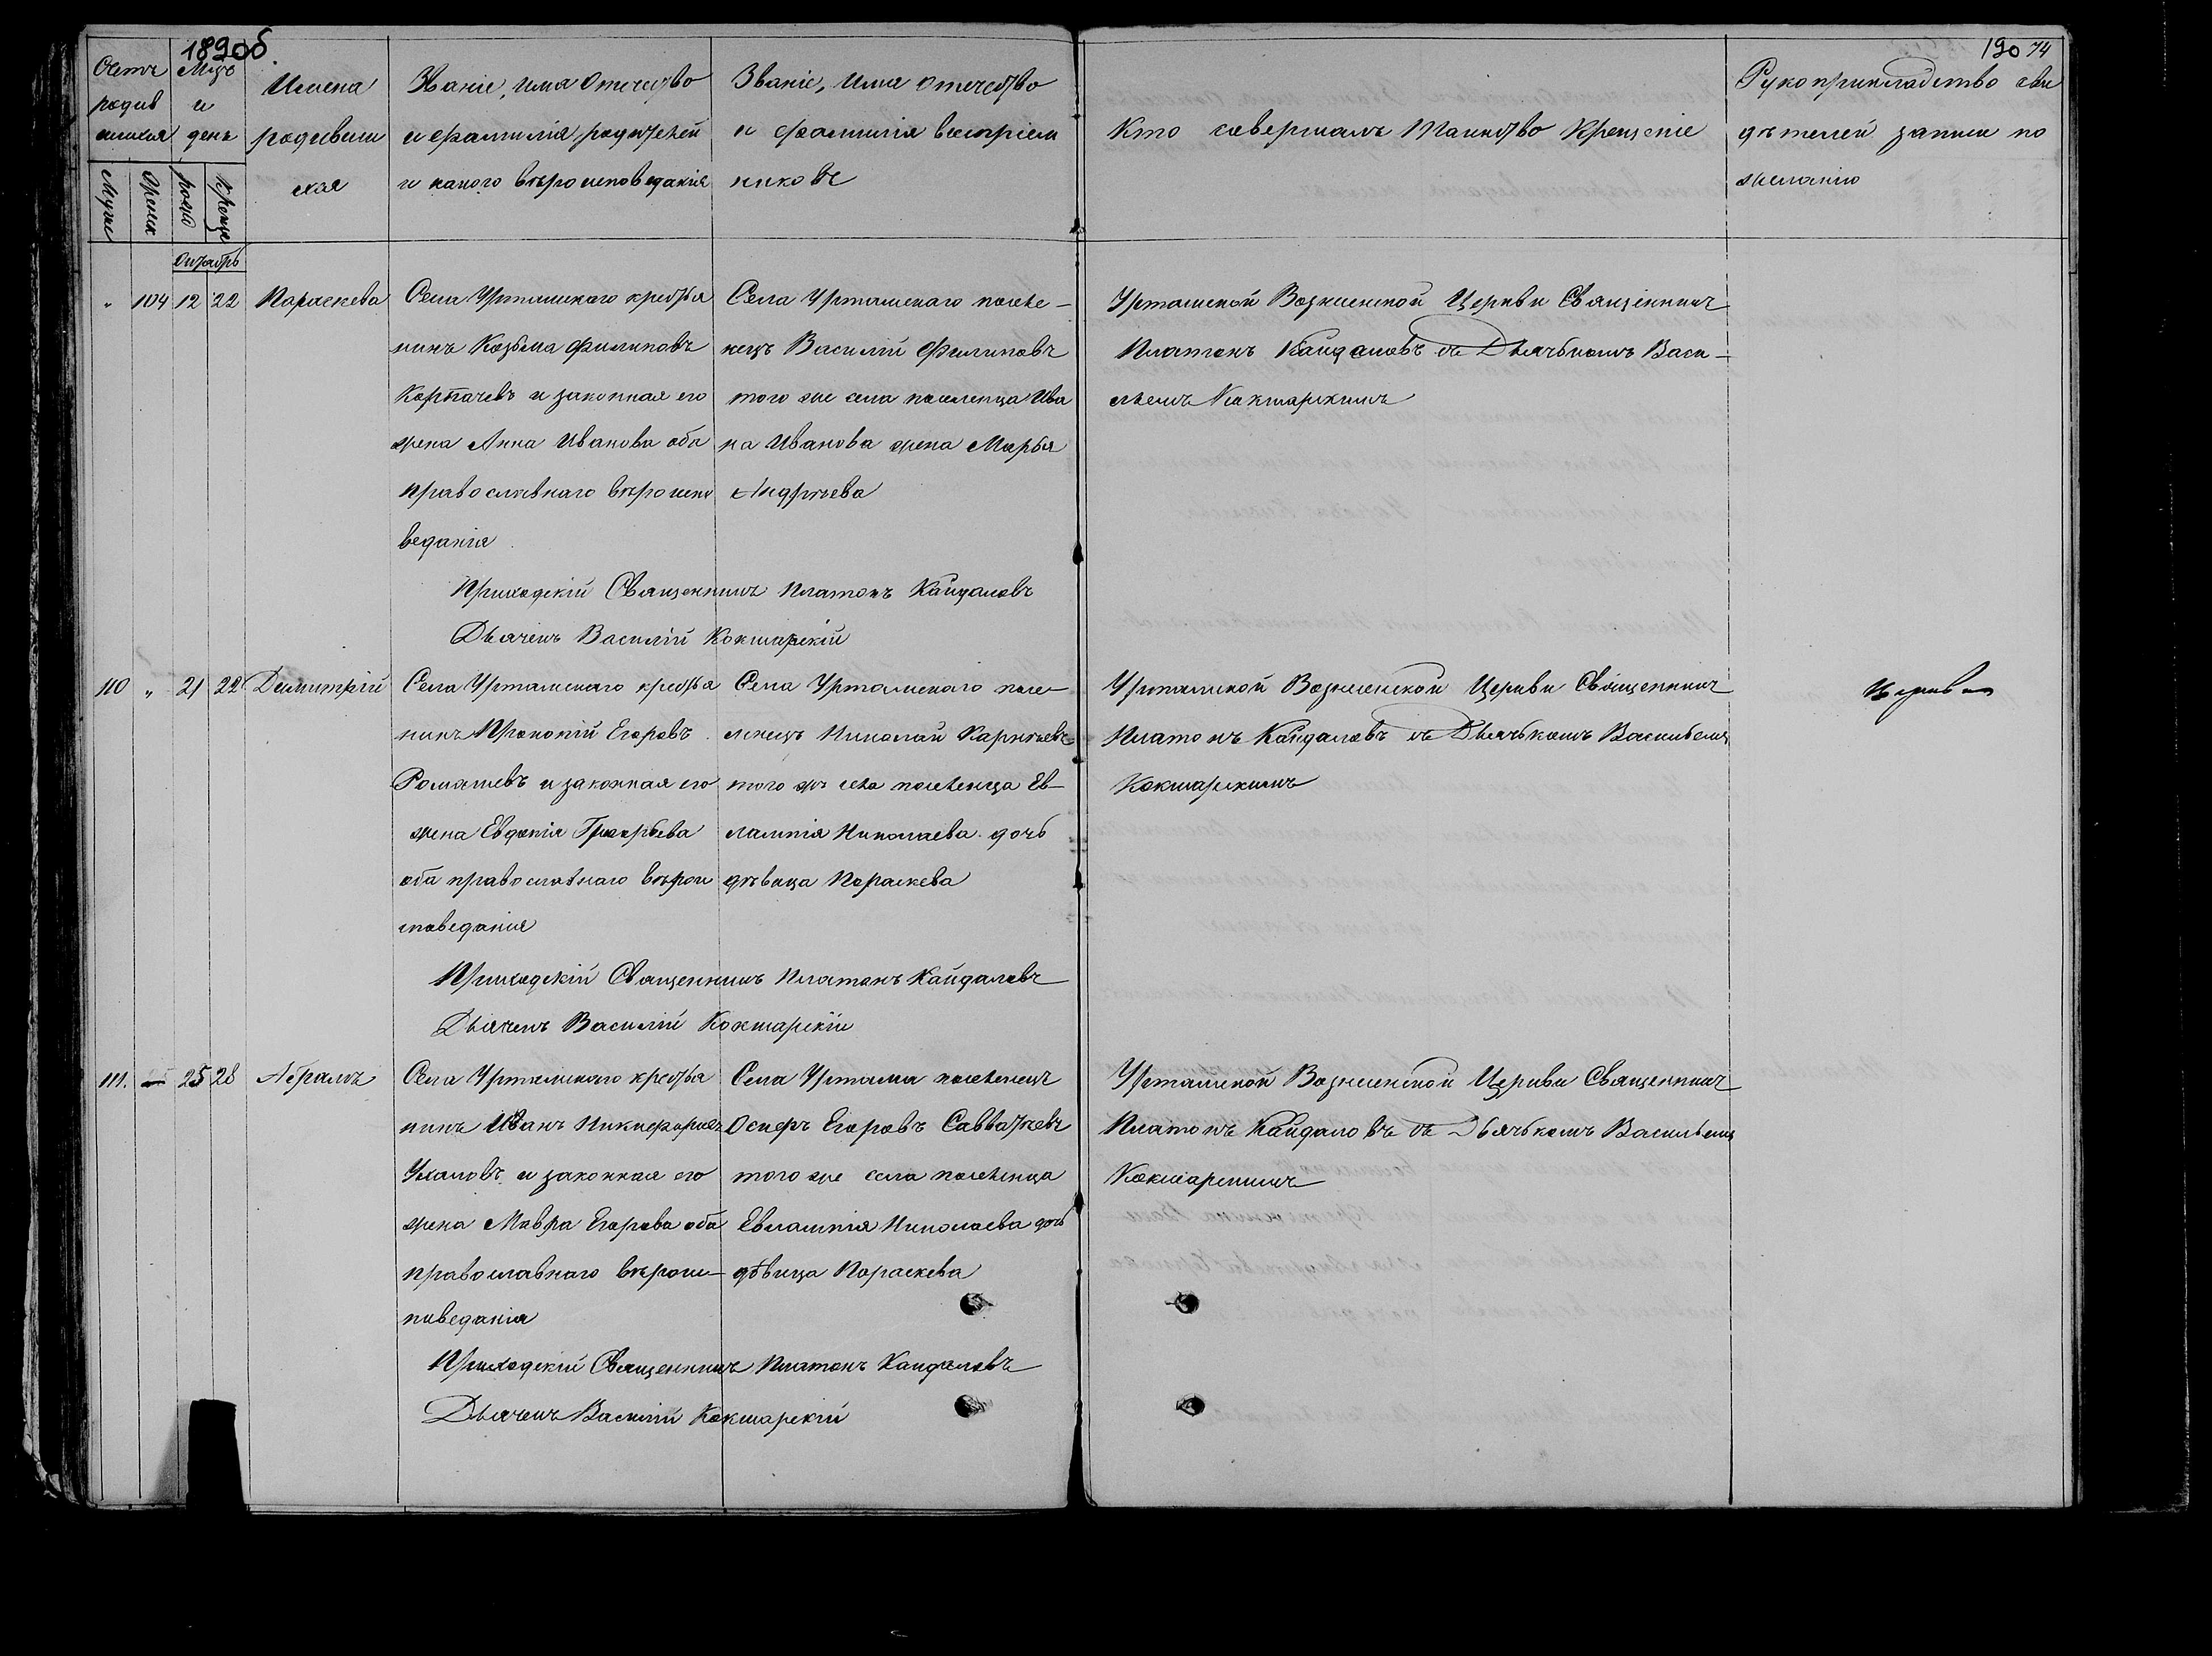 189об.
190 74
Счетъ родив шихся
Мцъ и день
Имена родивши хся
Званіе, имя отечество и фамилія родителей и какого вѣроисповеданія
Званіе, имя отечество и фамилія воспріем никовъ
Кто совершалъ Таинство Крещеніе
Рукоприкладство сви дѣтелей записи по желанію
Муж
Женск
рожд
Крещ
Октябрь
" 104 12 22 Параскева
Села Уртамскаго кресть
нинъ Козьма Филиповъ
Корпачевъ и законная его
жена Анна Иванова оба
православнаго вѣроиспо
веданія
Села Уртамскаго поселе-
нецъ Василій Филиповъ
того же села поселенца Ива
на Иванова жена Марья
Андрѣева
Уртамской Вознесенской Церкви Священникъ
Платонъ Кайдаловъ съ Дьячькомъ Васи-
льемъ Кокшарскимъ
Приходскій Священникъ Платонъ Кайдаловъ
Дьячекъ Василій Кокшарскій
110 " 21 22 Димитрій
Села Уртамскаго крестья
нинъ Прокопій Егоровъ
Ромашевъ и законная его
жена Евдокія Григорьева
оба православнаго вѣрои
споведанія
Села Уртамскаго посе-
ленецъ Николай Карнѣевъ
того жъ села поселенца Ев-
лампія Николаева дочь
дѣвица Параскева
Уртамской Вознесенской Церкви Священникъ
Платонъ Кайдаловъ съ Дьячькомъ Васильемъ
Кокшарскимъ
Приходскій Священникъ Платонъ Кайдаловъ
Дьячекъ Василій Кокшарскій
111. — 25 28 Абрамъ
Села Уртамскаго крестья
нинъ Иванъ Никифоровъ
Ухаловъ и законная его
жена Мавра Егорова оба
православнаго вѣроис-
поведанія
Села Уртама поселенецъ
Осипъ Егоровъ Савватѣевъ
того же села поселенца
Евлампія Николаева дочь
дѣвица Параскева
Уртамской Вознесенской Церкви Священникъ
Платонъ Кайдаловъ съ Дьячькомъ Васильемъ
Кокшарскимъ
Приходскій Священникъ Платонъ Кайдаловъ
Дьячекъ Василій Кокшарскій